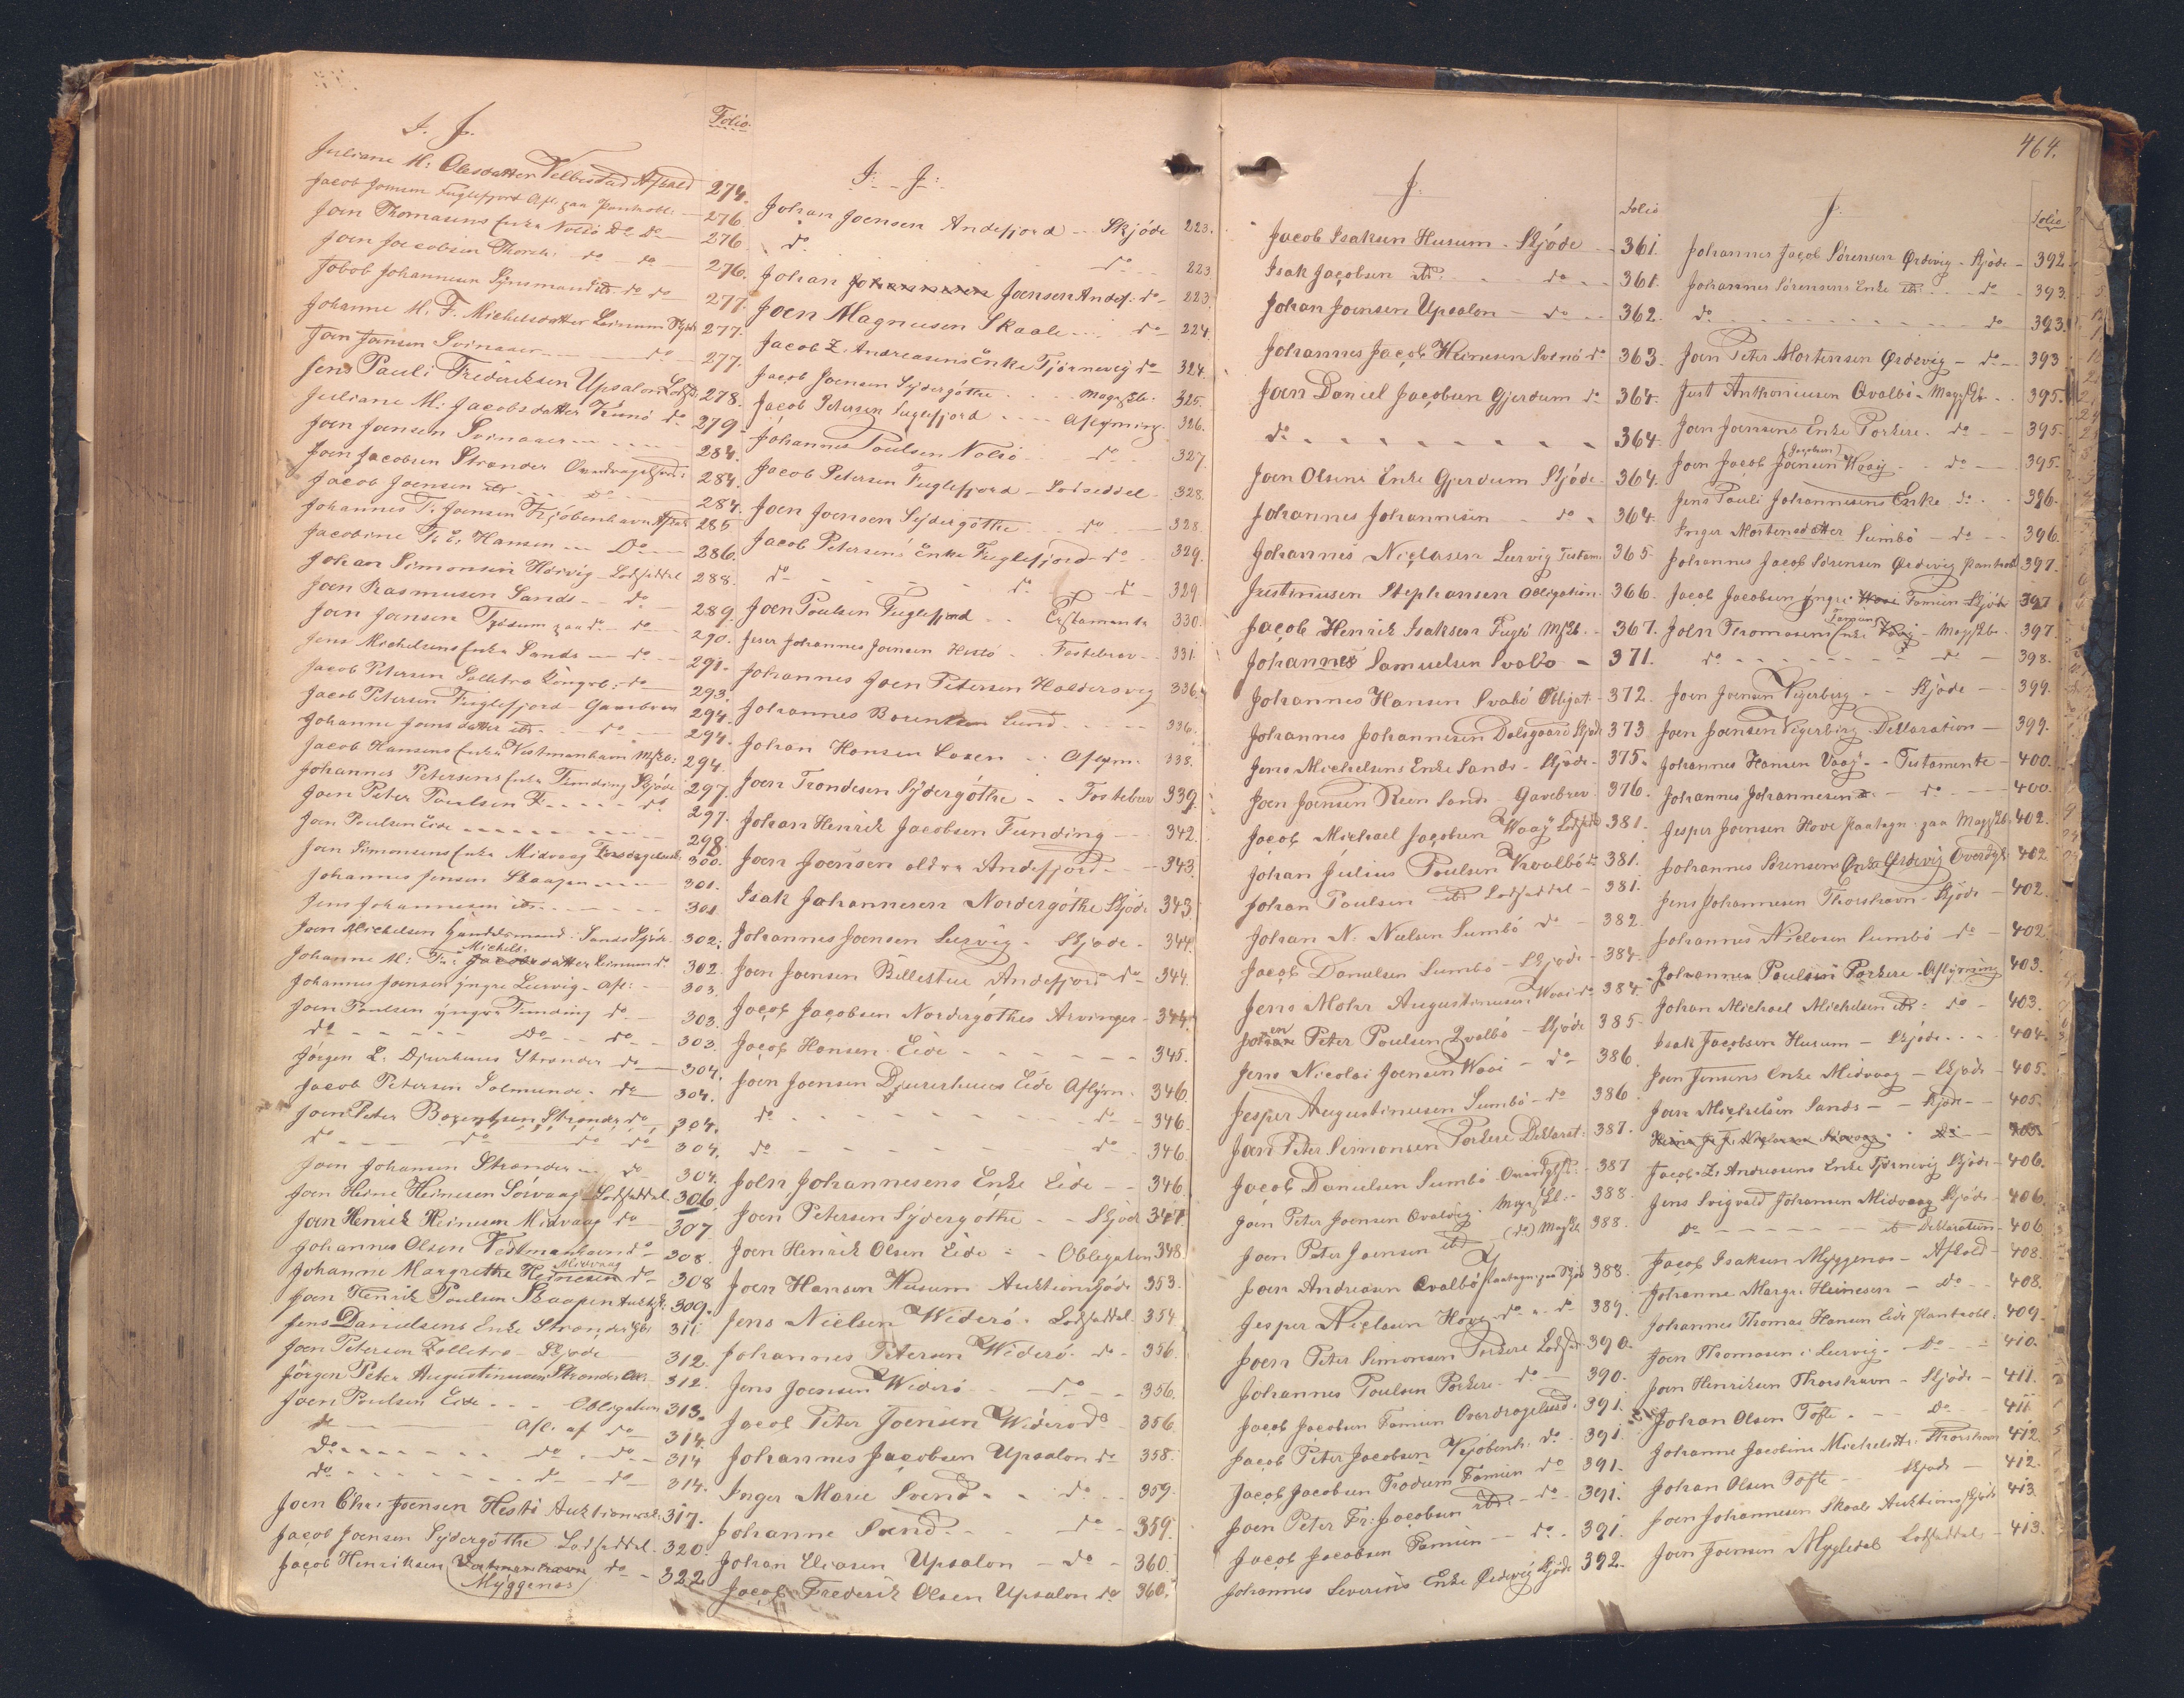 I. J.
Folio.
Juliane M: Olesdatter Velbestad Afkald 274.
Jacob Joensen Fuglefjord Afl. paa Panteobl. 276.
Joen Thomasens Enke Nolsö Do Do 276
Joen Jacobsen Thorsh. do do 276.
Jobob Johannesen Synsmand do do 277.
Johanne M. F. Michelsdatter Leinum Skjöde 277.
Joen Joensen Svinaaer do 277.
Jens Pauli Frederiksen Upsalon Lodse. 278.
Juliane M: Jacobsdatter Kunö do 279.
Joen Joensen Svinaaer 284.
Joen Jacobsen Strander 284.
Jacob Joensen ibd. Do 284.
Johannes T. Joensen Kjöbenhavn Afkald 285
Jacobine Fr. E. Hansen Do 286.
Johan Simonsen Hörvig Lodseddel 288.
Joen Rasmusen Sands do 289.
Joen Joensen paa do do 290.
Jens Michelsens Enke Sands do 291.
Jacob Petersen Solletrö do 293.
Jacob Petersen Fuglefjord Gavebrev 294.
Johanne Joensdatter ibd. do 294.
Jacob Hansens Enke Vestmanhavn 294.
Johannes Petersens Enke Funding Skjöde 297.
Joen Peter Poulsen F. do 297.
Joen Poulsen Eide 298.
Joen Simonsens Enke Midvaag 300.
Johannes Jensen Skaapen 301.
Jens Johannesen ibd. 301
Joen Michelsen Handelsmand Sands Skjöde 302.
Johanne M: Fr: Jacobsdatter Michels. Leinum do 302
Johannes Joensen yngre Lervig Afl: 303.
Joen Poulsen yngre Funding do 303.
do Do do 303.
Jörgen L. Djurhuus Strander do 304.
Jacob Petersen Solmunde do 304.
Joen Peter Strander do 304.
do do do do 304.
Joen Johansen Strander do 304.
Joen Heine Heinesen Sörvaag Lodseddel 306.
Joen Henrik Heinesen Midvaag do 307
Johannes Olsen Vestmanhavn do 308
Johanne Margrethe Heinesen Midvaag do 308
Joen Henrik Poulsen Skaapen Auktsk. 309.
Jens Danielsens Enke Strander 311
Joen Petersen Zolletrö Skjöde 312.
Jörgen Peter Augustinusen Strander 312.
Joen Poulsen Eide Obligation 313.
do Afl. af do 314.
Do do do 314
do do do 314.
Joen Chr. Joensen Hestö Auktionssk. 317.
Jacob Joensen Sydergöthe Lodseddel 320.
Jacob Henriksen Vestmanhavn do 322
(Myggenæs)
I. J:
Johan Joensen Andefjord Skjöde 223.
do do 223
Johan Johannesen Joensen Andef: do 223
Joen Magnusen Skaale do 224.
Jacob Z. Andreasens Enke Tjörnevig do 324.
Jacob Joensen Sydergöthe Mageskb. 325.
Jacob Petersen Fuglefjord Aflysning 326.
Johannes Poulsen Nolsö do 327.
Jacob Petersen Fuglefjord Lodseddel 328.
Joen Joensen Sydergöthe do 328.
Jacob Petersens Enke Fuglefjord do 329.
do do do 329
Joen Poulsen Fuglefjord Testamente 330.
Johannes Joensen Hestö Festebrev 331.
Johannes Joen Petersen Haldersvig 336.
Johannes Lund 336.
Johan Hansen Laxen Aflysn. 338.
Joen Trondesen Sydergöthe Festebrev 339.
Johan Henrik Jacobsen Funding 342.
Joen Joensen oldre Andefjord 343.
Isak Johannesen Nordergöthe Skjöde 343.
Johannes Joensen Lervig Skjöde 344.
Joen Joensen Billestue Andefjord do 344.
Jacob Jacobsen Nordergöthes Arvinger 344.
Jacob Hansen Eide 345.
Joen Joensen Djurehuus Eide Aflysn. 346.
do do 346
do do 346.
Joen Johannesens Enke Eide 346
Joen Petersen Sydergöthe Skjöde 347.
Joen Henrik Olsen Eide Obligation 348
Joen Hansen Husum Auktionsskjöde 353.
Jens Nielsen Widerö Lodseddel 354.
Johannes Petersen Widerö do 356.
Jens Joensen Widerö do 356.
Jacob Peter Joensen Widerö do 356.
Johannes Jacobsen Upsalon do 358.
Inger Marie Sund do 359.
Johanne Sund do 359.
Johan Eliasen Upsalon do 360.
Jacob Frederik Olsen Upsalon do 360.
J:
Folio
Jacob Isaksen Husum Skjöde 361.
Isak Jacobsen ibd. do 361.
Johan Joensen Upsalon do 362.
Johannes Jacob Heinesen Svinö do 363.
Joen Daniel Jacobsen Gjerdum do 364.
do 364.
Joen Olsens Enke Gjerdum Skjöde 364.
Johannes Johannesen do 364.
Johannes Niclasen Lervig Testam. 365.
Justinusen Stephansen Obligation 366.
Jacob Henrik Isaksen Fuglö 367.
Johannes Samuelsen Svalbo 371.
Johannes Hansen Svabö Obligat. 372.
Johannes Johannesen Dalsgaard Skjöde 373
Jens Michelsens Enke Sands Skjöde 375.
Joen Joensen Reen Sands Gavebrev 376.
Jacob Michael Jacobsen Waag Lodsed. 381.
Johan Julius Poulsen Kvalbö do 381.
Johan Poulsen ibd Lodseddel 381.
Johan N. Nielsen Sumbö do 382.
Jacob Danielsen Sumbö Skjöde 384.
Jens Mohr Augustinusen Waai do 384.
Johan en Peter Poulsen Qvalbö Skjöde 385.
Jens Nicolai Joensen Waai do 386.
Jesper Augustinusen Sumbö do 386.
Joen Peter Simonsen Porkere Deklarat: 387.
Jacob Danielsen Sumbö 387
Joen Peter Joensen Qvalvig 388.
Joen Peter Joensen ibd (do) 388.
Joen Andreasen Qvalbö Paategn. paa Skjöde 388.
Jesper Niclasen Hove do do 389.
Joen Peter Simonsen Porkere Lodsed. 390.
Johannes Poulsen Porkere do 390.
Jacob Jacobsen Famien Overdragelsesd. 391.
Jacob Peter Jacobsen Kjöbenh. do 391.
Jacob Jacobsen Frodum Famien do 391.
Joen Peter Fr. Jacobsen ibd. do 391.
Jacob Jacobsen Famien do 391.
Johannes Severins Enke Ördevig Skjöde 392.
464.
J.
Folio
Johannes Jacob Sörensen Ördevig Skjöde 392.
Johannes Sörensens Enke ibd. do 393.
do do 393.
Joen Peter Mortensen Ördevig do 393
Just Anthoniusen Qvalbö Mageskb. 395.
Joen Joensens Enke Porkere do 395.
Joen Jacob Joensen (Jacobsen) Waag do 395.
Jens Pauli Johannesens Enke do 396.
Inger Mortensdatter Sumbö do 396.
Johannes Jacob Sörensen Ördevig Panteobl 397.
Jacob Jacobsen yngre Waai Famien Skjöde 397
Joen Thomasens Enke Famien Waag Mageskb. 397.
do do 398.
Joen Joensen Vegerberg Skjöde 399.
Joen Joensen Vegerberg Deklaration 399.
Johannes Hansen Vaag Testamente 400.
Johannes Johannesen do 400.
Jesper Joensen Hove Paategn. paa Mageskb. 402.
Johannes Sörensens Enke Ördevig Overdgls. 402.
Jens Johannesen Thorshavn Skjöde 402.
Johannes Niclasen Sumbö do 402.
Johannes Poulsen Porkere Aflysning 403.
Johan Michael Michelsen ibd. do 403.
Isak Jacobsen Husum Skjöde 404.
Joen Jensens Enke Midvaag Skjöde 405.
Joen Michelsen Sands Skjöde 405.
Heine J. F. Niclasen Sörvaag do 405
Jacob Z. Andreasens Enke Tjörnevig Skjöde 406.
Jens Sigvald Johansen Midvaag Skjöde 406.
Do ib Deklaration 406
Jacob Isaksen Myggenæs Afkald 408.
Johanne Margr. Heinesen do 408.
Johannes Thomas Hansen Eide Pantobl. 409.
Joen Thomasen i Lervig Do 410.
Joen Henriksen Thorshavn Skjöde 411.
Johan Olsen Tofte Do 411
Johanne Jacobine Michelsdtr. Thorshavn 412.
Johan Olsen Tofte Skjöde 412.
Joen Johannesen Skaale Auktionsskjöde 413
Joen Joensen Mygledal Lodseddel 413.